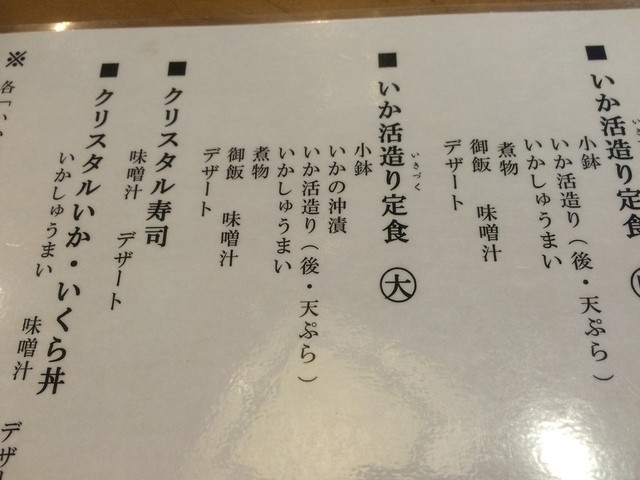 ■ いか活造り定食
小鉢
いか活造り（後・天ぷら）
いかしゅうまい
煮物
御飯 味噌汁
デザート
■ いか活造り定食 大
いきづく
小鉢
いかの沖漬
いか活造り（後・天ぷら）
いかしゅうまい
煮物
御飯 味噌汁
デザート
■ クリスタル寿司
味噌汁 デザート
■ クリスタルいか・いくら丼
いかしゅうまい 味噌汁 デザー
※ 各「いか